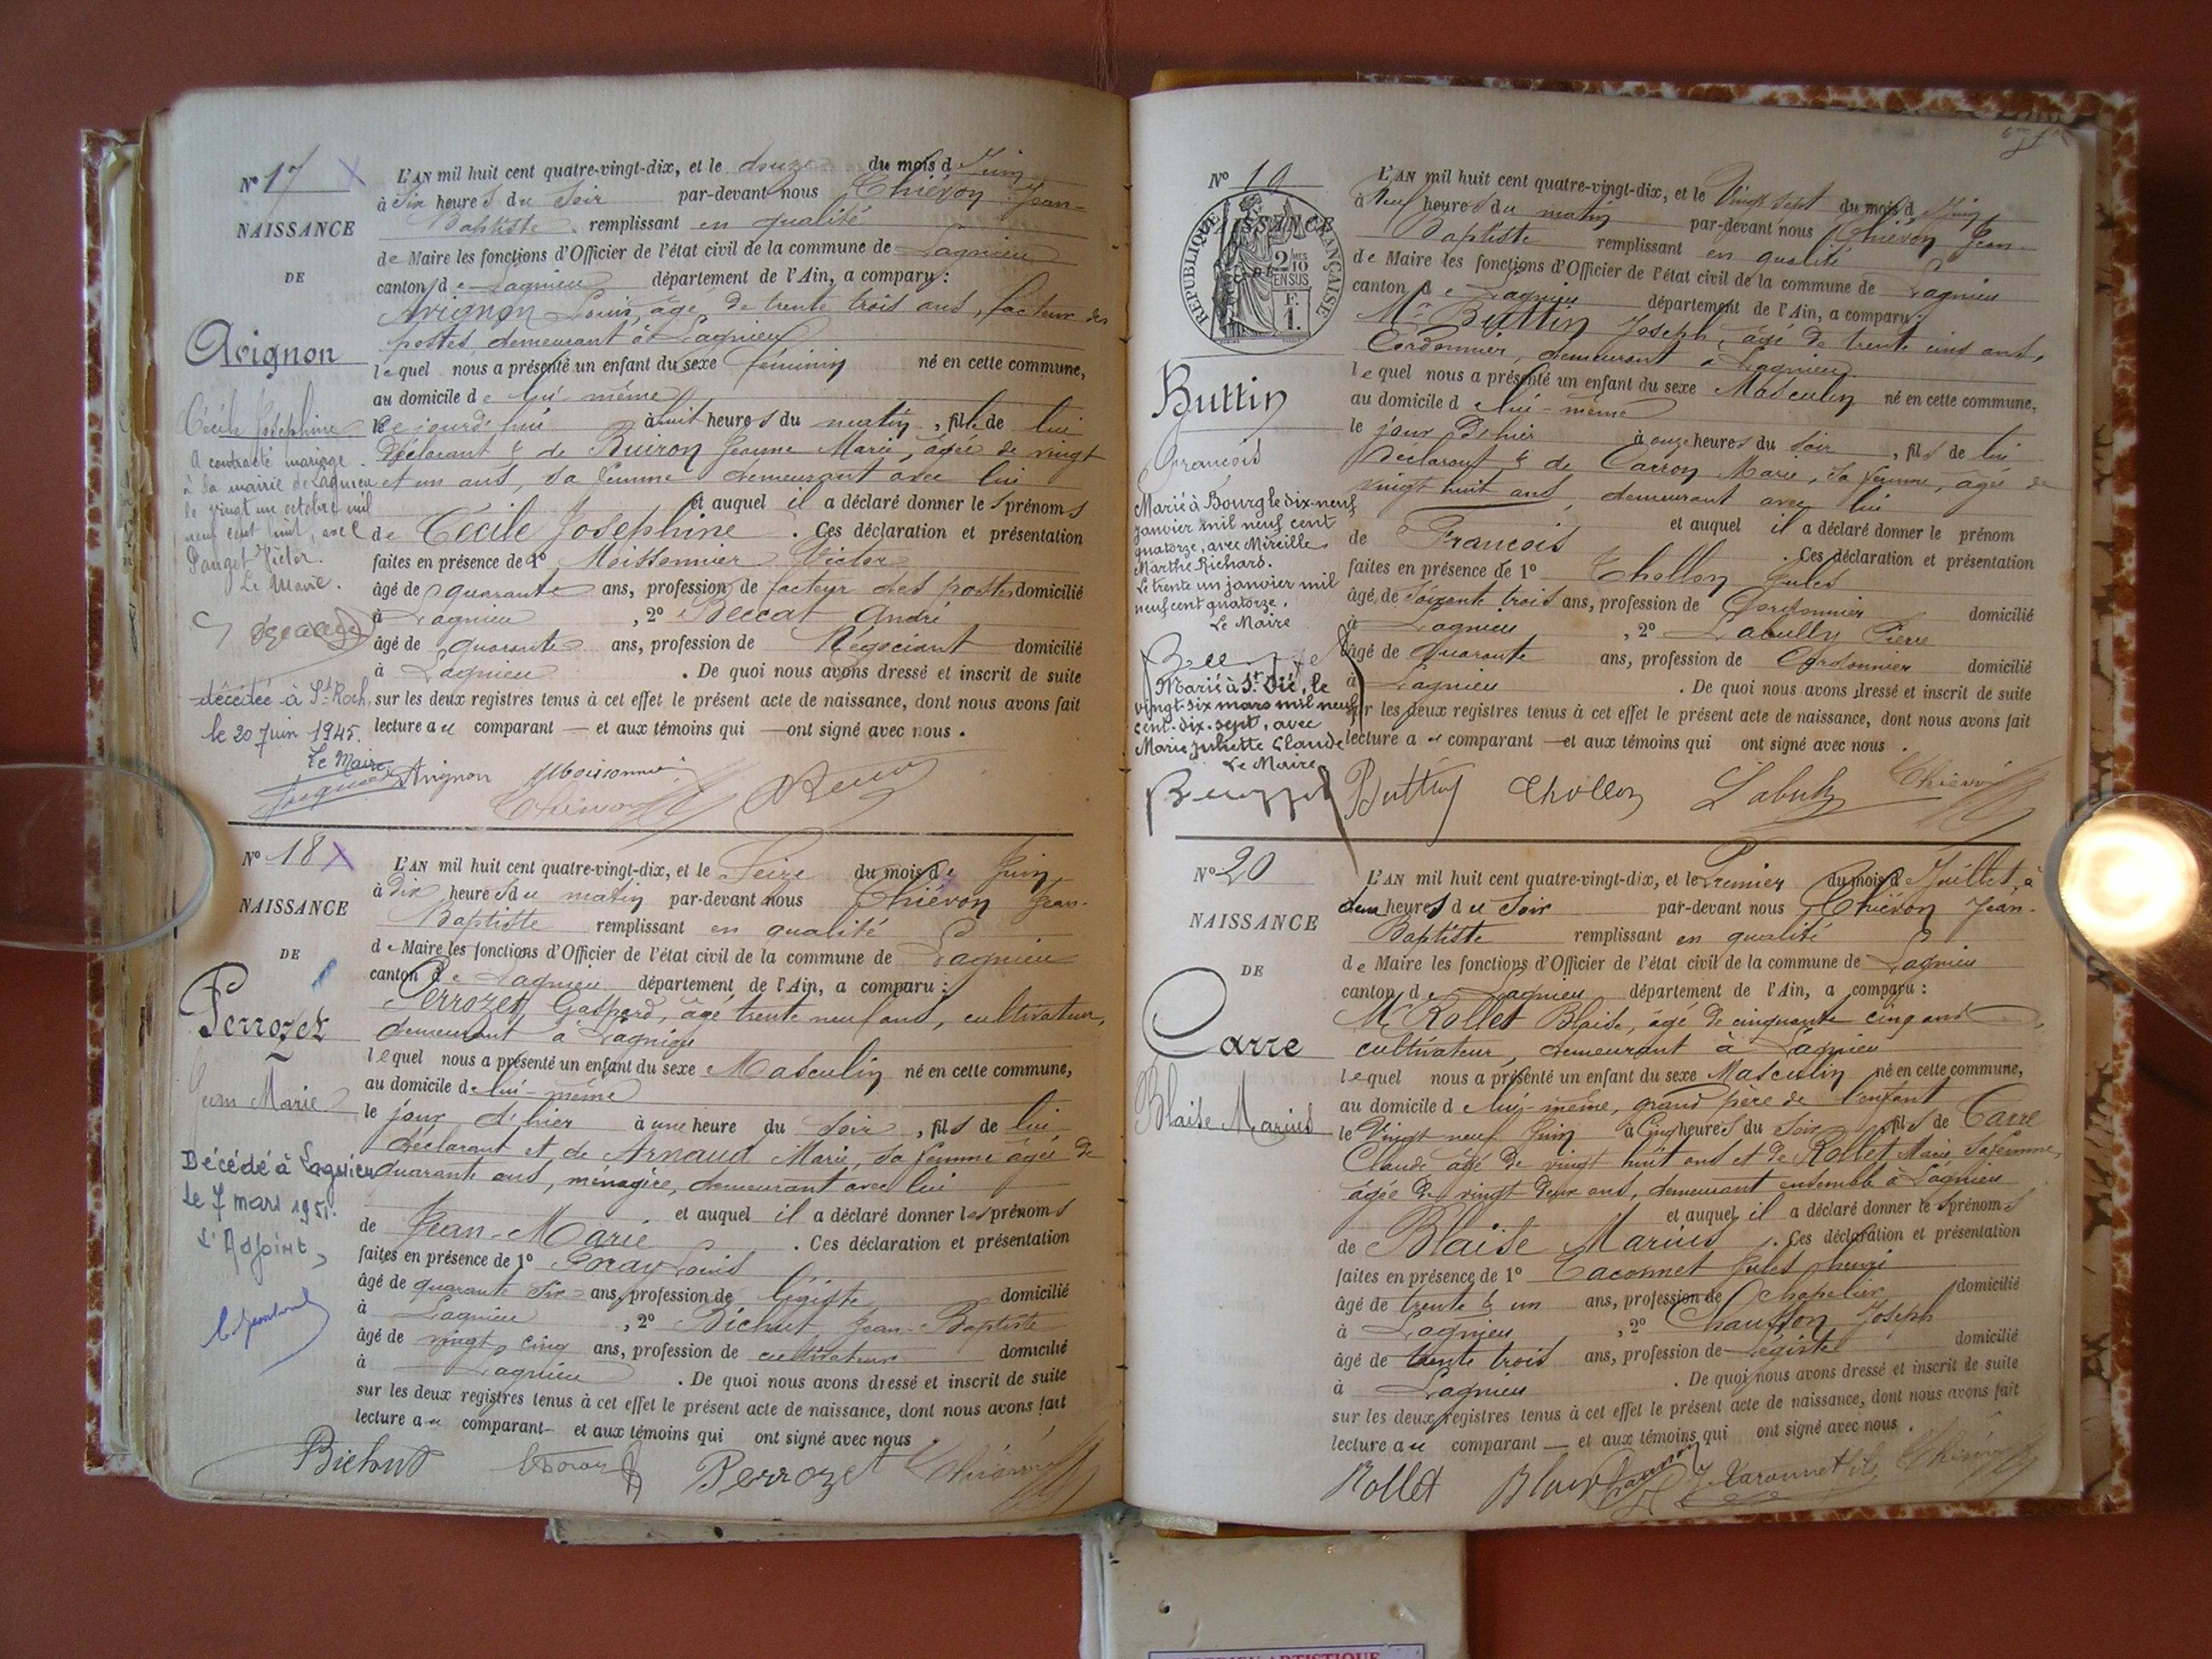 N° 17
NAISSANCE
DE
Avignon
Cécile Joséphine
A contracté mariage
à la mairie de Lagnieu
le vingt un octobre mil
neuf cent huit, avec
Pouget Victor.
Le Maire.
décédée à St Roch,
le 20 Juin 1945.
Le Maire
L'AN mil huit cent quatre-vingt-dix, et le douze du mois d Juin
à Six heures du Soir par-devant nous Chiévon Jean-
Baptiste remplissant en qualité
de Maire les fonctions d'Officier de l'état civil de la commune de Lagnieu
canton de Lagnieu département de l'Ain, a comparu :
Avignon Louis, âgé de trente trois ans, facteur des
postes, demeurant à Lagnieu
lequel nous a présenté un enfant du sexe féminin né en cette commune,
au domicile de lui-même
le jourd'hui à huit heures du matin, fille de lui
déclarant & de Buiron Jeanne Marie, âgée de vingt
et un ans, sa femme demeurant avec lui
et auquel il a déclaré donner les prénoms
de Cécile Joséphine. Ces déclaration et présentation
faites en présence de 1° Moissonnier Victor
âgé de quarante ans, profession de facteur des postes domicilié
à Lagnieu, 2° Beccat André
âgé de quarante ans, profession de Négociant domicilié
à Lagnieu. De quoi nous avons dressé et inscrit de suite
sur les deux registres tenus à cet effet le présent acte de naissance, dont nous avons fait
lecture au comparant — et aux témoins qui — ont signé avec nous.
Avignon Moissonnier
N° 18
NAISSANCE
DE
Perrozet
Jean Marie
Décédé à Lagnieu
Le 7 mars 1951.
L'Adjoint,
L'AN mil huit cent quatre-vingt-dix, et le Seize du mois de Juin
à Dix heures du matin par-devant nous Chiévon Jean-
Baptiste remplissant en qualité
de Maire les fonctions d'Officier de l'état civil de la commune de Lagnieu
canton de Lagnieu département de l'Ain, a comparu :
Perrozet Gaspard, âgé trente neuf ans, cultivateur,
demeurant à Lagnieu
lequel nous a présenté un enfant du sexe Masculin né en cette commune,
au domicile de lui-même
le jour d'hier à une heure du soir, fils de lui
déclarant et de Arnaud Marie, sa femme âgée de
quarante ans, ménagère, demeurant avec lui
et auquel il a déclaré donner les prénoms
de Jean-Marie. Ces déclaration et présentation
faites en présence de 1° Louis
âgé de quarante six ans, profession de légiste domicilié
à Lagnieu, 2° Bichut Jean-Baptiste
âgé de vingt cinq ans, profession de cultivateur domicilié
à Lagnieu. De quoi nous avons dressé et inscrit de suite
sur les deux registres tenus à cet effet le présent acte de naissance, dont nous avons fait
lecture au comparant — et aux témoins qui ont signé avec nous
Bichut Perrozet
N° 19
RÉPUBLIQUE FRANÇAISE
2/10 EN SUS
1 F.
Buttin
François
Marié à Bourg le dix-neuf
janvier mil neuf cent
quatorze, avec Mireille
Marthe Richard.
Le trente un janvier mil
neuf cent quatorze.
Le Maire
Marié à St Dié, le
vingt-six mars mil neuf
cent-dix-sept, avec
Marie Juliette Claude
Le Maire
L'AN mil huit cent quatre-vingt-dix, et le Vingt sept du mois d Juin
à Neuf heures du matin par-devant nous Chiévon Jean-
Baptiste remplissant en qualité
de Maire les fonctions d'Officier de l'état civil de la commune de Lagnieu
canton de Lagnieu département de l'Ain, a comparu :
Mr Buttin Joseph, âgé de trente cinq ans,
Cordonnier, demeurant à Lagnieu.
lequel nous a présenté un enfant du sexe Masculin né en cette commune,
au domicile de lui-même
le jour d'hier à onze heures du Soir, fils de lui
déclarant & de Carron Marie, sa femme, âgée de
vingt huit ans, demeurant avec lui
et auquel il a déclaré donner le prénom
de François. Ces déclaration et présentation
faites en présence de 1° Chollon Jules
âgé de soixante trois ans, profession de Cordonnier domicilié
à Lagnieu, 2° Labully Pierre
âgé de Quarante ans, profession de Cordonnier domicilié
à Lagnieu. De quoi nous avons dressé et inscrit de suite
sur les deux registres tenus à cet effet le présent acte de naissance, dont nous avons fait
lecture au comparant — et aux témoins qui ont signé avec nous.
Buttin Chollon
N° 20
NAISSANCE
DE
Carre
Blaise Marius
L'AN mil huit cent quatre-vingt-dix, et le Premier du mois d Juillet, à
deux heures du Soir par-devant nous Chiévon Jean-
Baptiste remplissant en qualité
de Maire les fonctions d'Officier de l'état civil de la commune de Lagnieu
canton de Lagnieu département de l'Ain, a comparu :
Mr Rollet Blaise, âgé de cinquante cinq ans
cultivateur, demeurant à Lagnieu
lequel nous a présenté un enfant du sexe Masculin né en cette commune,
au domicile de lui-même, grand père de l'enfant
le Vingt neuf Juin à Cinq heures du Soir fils de Carre
Claude âgé de vingt huit ans et de Rollet Marie Sa femme,
âgée de vingt deux ans, demeurant ensemble à Lagnieu
et auquel il a déclaré donner les prénoms
de Blaise Marius. Ces déclaration et présentation
faites en présence de 1° Taconnet Jules henri
âgé de trente & un ans, profession de Chapelier domicilié
à Lagnieu, 2° Joseph
âgé de trente trois ans, profession de Légiste domicilié
à Lagnieu. De quoi nous avons dressé et inscrit de suite
sur les deux registres tenus à cet effet le présent acte de naissance, dont nous avons fait
lecture au comparant — et aux témoins qui ont signé avec nous.
Rollet